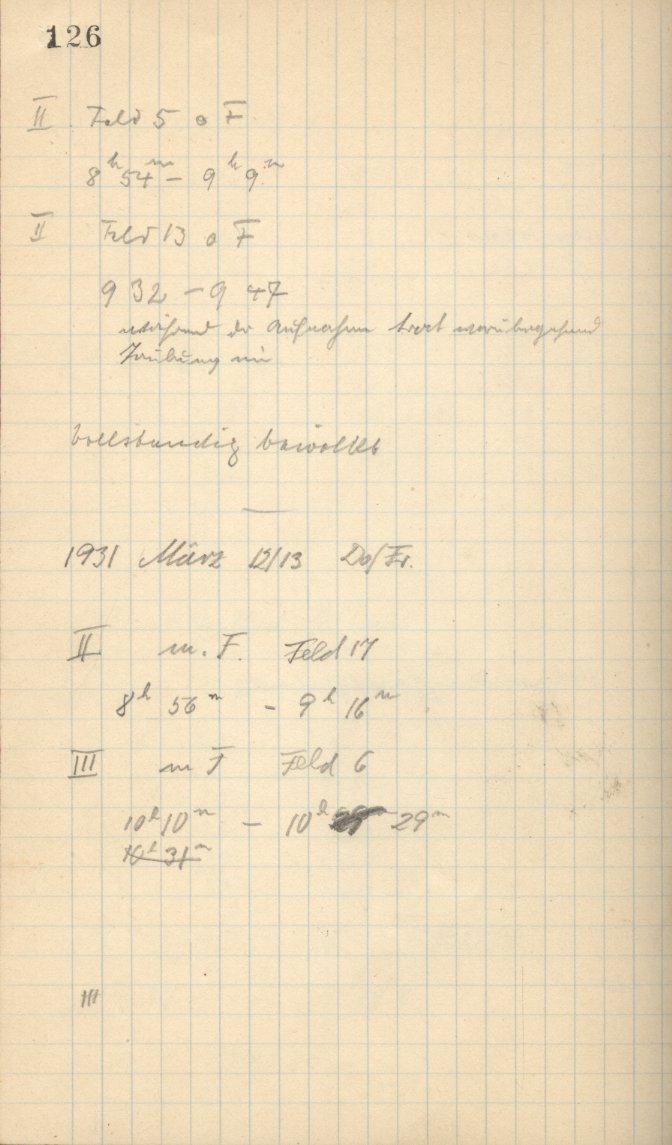 126
II Feld 5 o F
8h 54m - 9h 9m
II Feld 13 o F
9 32 - 9 47
während der Aufnahme trat vorübergehend
Trübung ein
vollständig bewölkt
1931 März 12/13 Do/Fr.
II m. F. Feld 17
8h 56m - 9h 16m
III m F Feld 6
10h 10m - 10h 29m
10h 31m
III